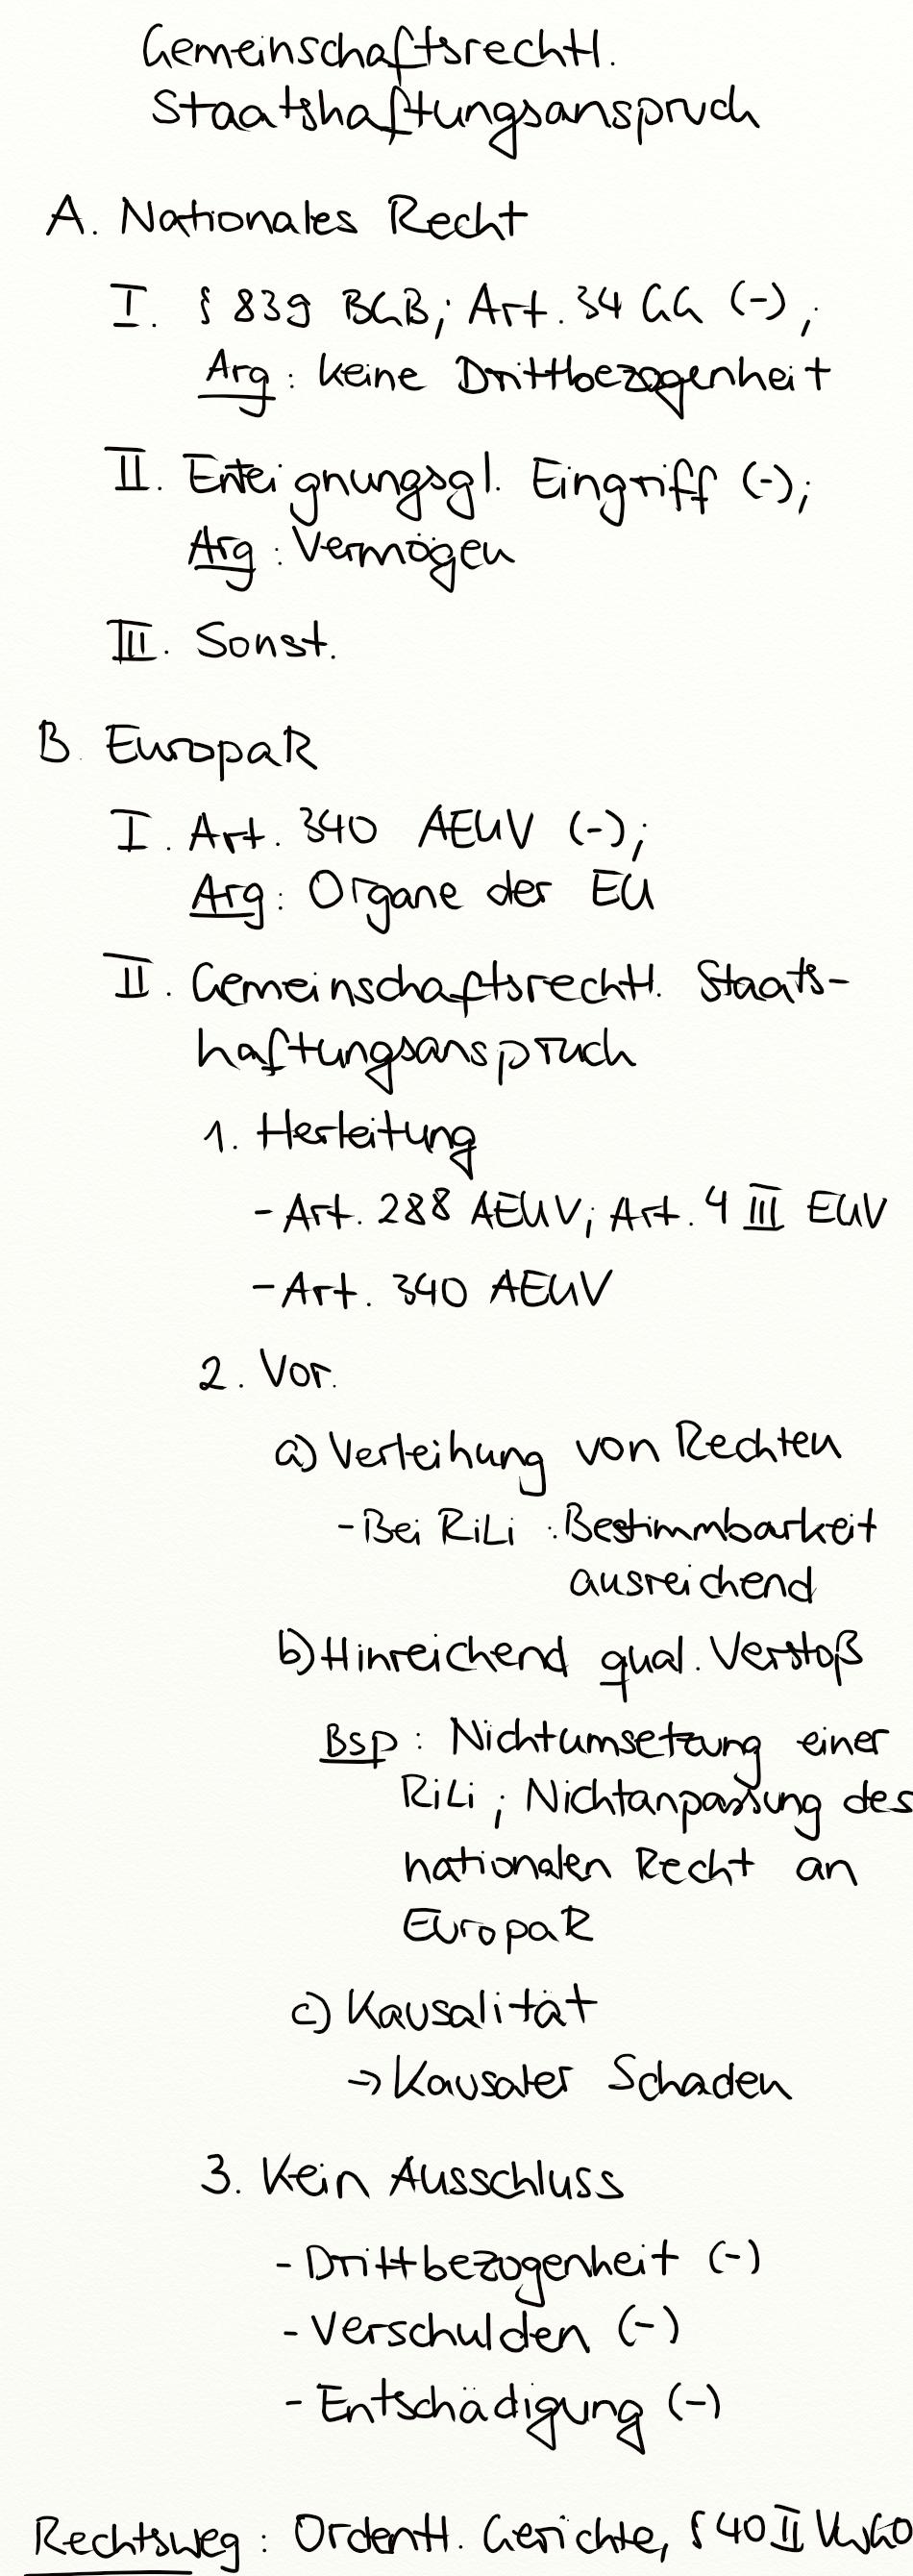 Gemeinschaftsrechtl.
Staatshaftungsanspruch
A. Nationales Recht
I. § 839 BGB; Art. 34 GG (-);
Arg: keine Drittbezogenheit
II. Enteignungsgl. Eingriff (-);
Arg: Vermögen
III. Sonst.
B. EuropaR
I. Art. 340 AEUV (-);
Arg: Organe der EU
II. Gemeinschaftsrechtl. Staats-
haftungsanspruch
1. Herleitung
- Art. 288 AEUV; Art. 4 III EUV
- Art. 340 AEUV
2. Vor.
a) Verleihung von Rechten
- Bei RiLi: Bestimmbarkeit
ausreichend
b) Hinreichend qual. Verstoß
Bsp: Nichtumsetzung einer
RiLi; Nichtanpassung des
nationalen Recht an
EuropaR
c) Kausalität
→ Kausaler Schaden
3. Kein Ausschluss
- Drittbezogenheit (-)
- Verschulden (-)
- Entschädigung (-)
Rechtsweg: Ordentl. Gerichte, § 40 II VwGO